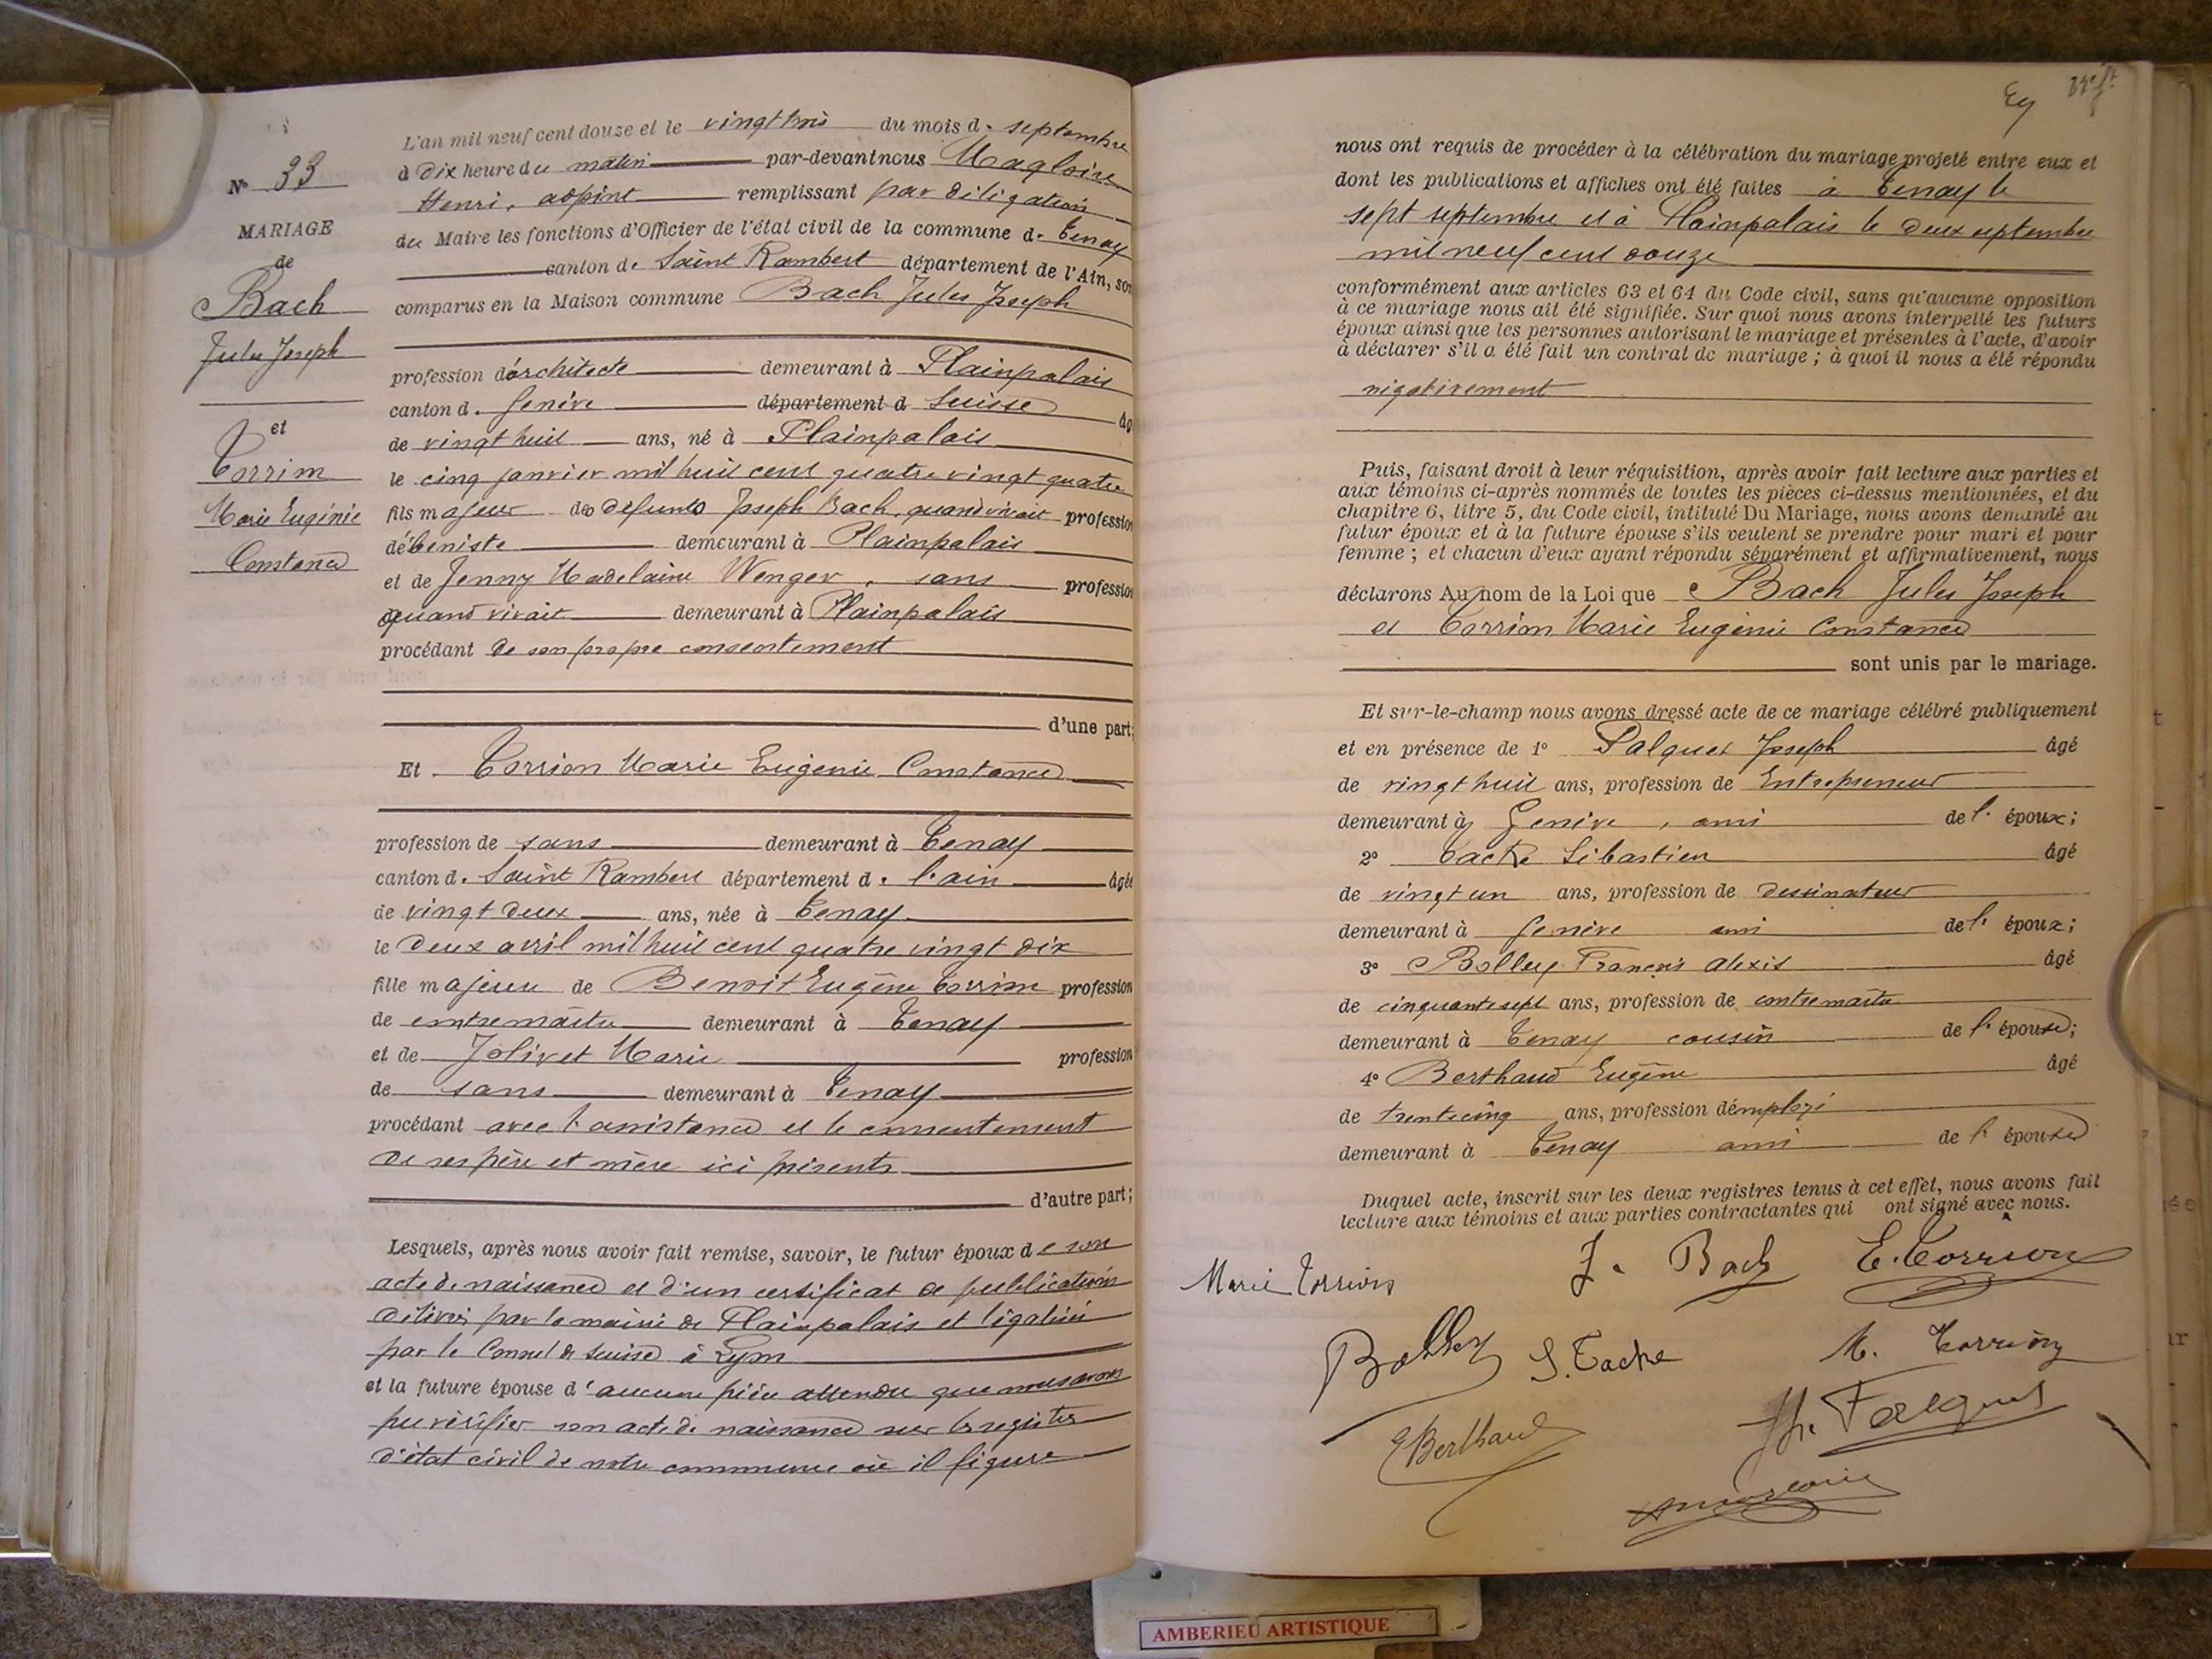 L'an mil neuf cent douze et le vingt trois du mois d. septembre
N° 33
à dix heure du matin par-devant nous Magloire
Henri, adjoint remplissant par déligation
MARIAGE
du Maire les fonctions d'Officier de l'état civil de la commune d. Tenay
canton d. Saint Rambert département de l'Ain, son
de
Bach
comparus en la Maison commune Bach Jules Joseph
Jules Joseph
profession d'architecte demeurant à Plainpalais
canton d. Genève département d Suisse âg
et
de vingt huit ans, né à Plainpalais
Torrion
le cinq janvier mil huit cent quatre vingt quatre
Marie Eugénie
fils majeur des défunts Joseph Bach, quand vivait profession
Constance
d'ébeniste demeurant à Plainpalais
et de Jenny Madelaine Wenger, sans profession
quand vivait demeurant à Plainpalais
procédant de son propre consentement
d'une part;
Et. Torrion Marie Eugenie Constance
profession de sans demeurant à Tenay
canton d. Saint Rambert département d. l'ain âgée
de vingt deux ans, née à Tenay
le deux avril mil huit cent quatre vingt dix
fille majeure de Benoit Eugène Torrion profession
de contremaitre demeurant à Tenay
et de Jolivet Marie profession
de sans demeurant à Tenay
procédant avec l'assistance et le consentement
de ses père et mère ici présents
d'autre part;
Lesquels, après nous avoir fait remise, savoir, le futur époux de son
acte de naissance et d'un certificat de publication
délivrés par la mairie de Plainpalais et légalisés
par le Consul de Suisse à Lyon
et la future épouse d'aucune pièce attendu que nous avons
pu vérifier son acte de naissance sur les registres
d'état civil de notre commune où il figure
nous ont requis de procéder à la célébration du mariage projeté entre eux et
dont les publications et affiches ont été faites à Tenay le
sept septembre et à Plainpalais le deux septembre
mil neuf cent douze
conformément aux articles 63 et 64 du Code civil, sans qu'aucune opposition
à ce mariage nous ait été signifiée. Sur quoi nous avons interpellé les futurs
époux ainsi que les personnes autorisant le mariage et présentes à l'acte, d'avoir
à déclarer s'il a été fait un contrat de mariage ; à quoi il nous a été répondu
négativement
Puis, faisant droit à leur réquisition, après avoir fait lecture aux parties et
aux témoins ci-après nommés de toutes les pièces ci-dessus mentionnées, et du
chapitre 6, titre 5, du Code civil, intitulé Du Mariage, nous avons demandé au
futur époux et à la future épouse s'ils veulent se prendre pour mari et pour
femme ; et chacun d'eux ayant répondu séparément et affirmativement, nous
déclarons Au nom de la Loi que Bach Jules Joseph
et Torrion Marie Eugénie Constance
sont unis par le mariage.
Et sur-le-champ nous avons dressé acte de ce mariage célébré publiquement
et en présence de 1° Falquet Joseph âgé
de vingt huit ans, profession de Entrepreneur
demeurant à Genève, ami de l' époux;
2° Tacke Sébastien âgé
de vingt un ans, profession de dessinateur
demeurant à Genève ami de l' époux;
3° Bolley François Alexis âgé
de cinquante sept ans, profession de contremaitre
demeurant à Tenay cousin de l' épouse;
4° Berthaud Eugène âgé
de trente cinq ans, profession d'employé
demeurant à Tenay ami de l' épouse
Duquel acte, inscrit sur les deux registres tenus à cet effet, nous avons fait
lecture aux témoins et aux parties contractantes qui ont signé avec nous.
Marie Torrion J. Bach E. Torrion
Bolley S. Tacke M. Torrion
E Berthaud Jh. Falquet
Magloire
AMBERIEU ARTISTIQUE